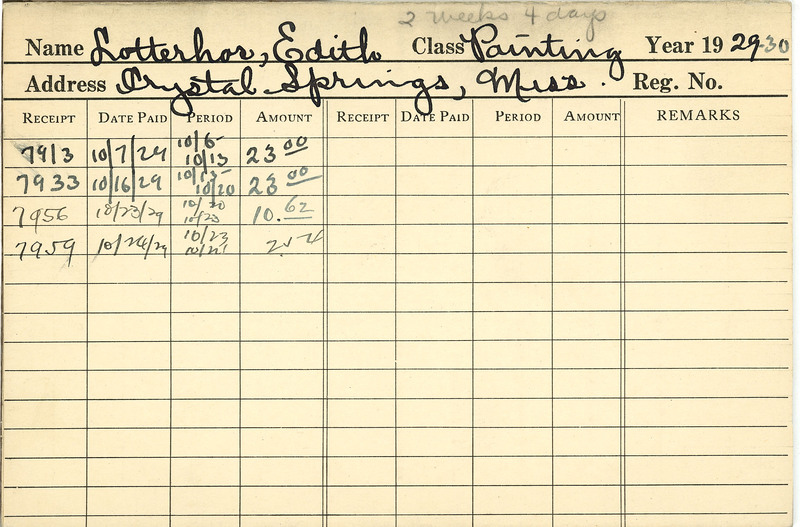 2 weeks 4 days
Name Lotterhos, Edith Class Painting Year 1929-30
Address Crystal Springs, Miss. Reg. No.
RECEIPT DATE PAID PERIOD AMOUNT RECEIPT DATE PAID PERIOD AMOUNT REMARKS
7913 10/7/29 10/6- 10/13 23 00
7933 10/16/29 10/13- 10/20 23 00
7956 10/23/29 10/20 10/23 10.62
7959 10/24/29 10/23